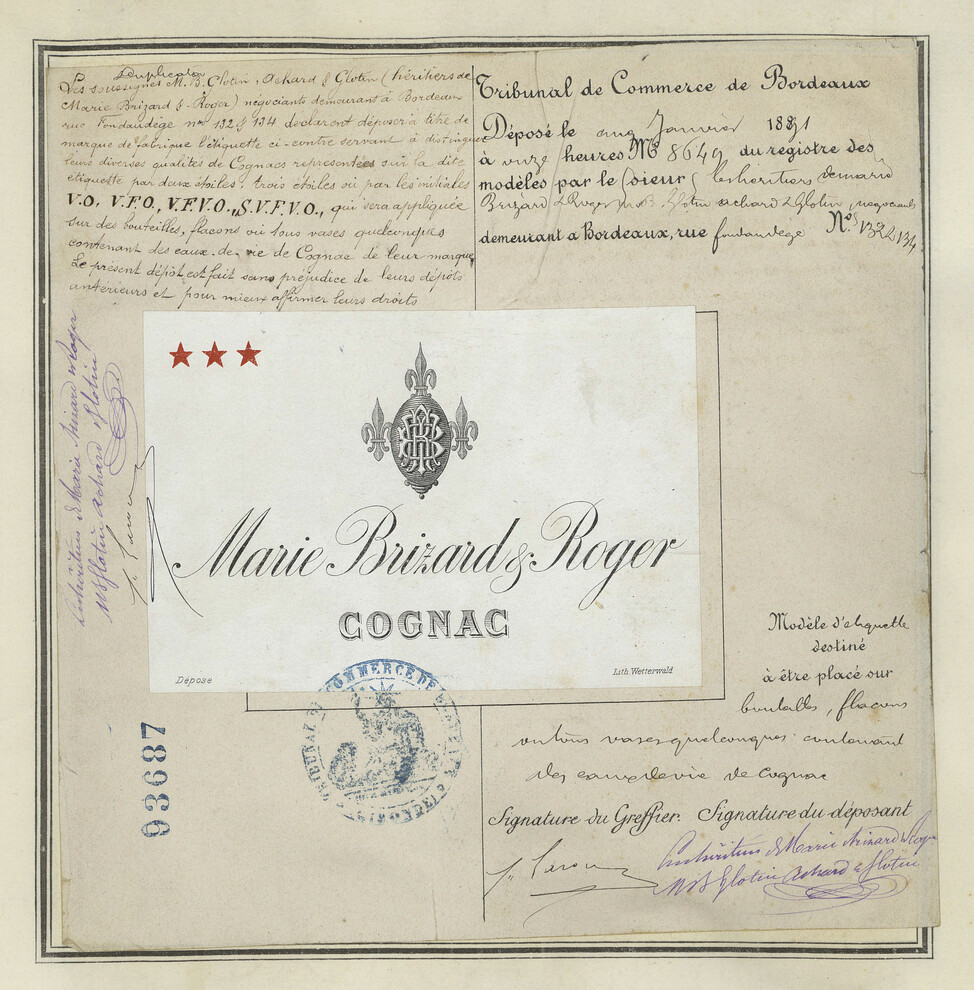 Duplicata
Les soussignés M. B. Glotin, Achard & Glotin (héritiers de
Marie Brizard & Roger) négociants demeurant à Bordeaux
rue Fondaudège nos 132 & 134 déclarent déposer à titre de
marque de fabrique l'étiquette ci-contre servant à distinguer
leurs diverses qualités de Cognacs représentées sur la dite
étiquette par deux étoiles, trois étoiles ou par les initiales
V.O., V.F.O., V.F.V.O., S.V.F.V.O., qui sera appliquée
sur des bouteilles, flacons ou tous vases quelconques
contenant des eaux-de-vie de Cognac de leur marque
Le présent dépôt est fait sans préjudice de leurs dépôts
antérieurs et pour mieux affirmer leurs droits
Tribunal de Commerce de Bordeaux
Déposé le cinq Janvier 1891
à onze heures No 8649 du registre des
modèles par le (sieur) les héritiers de marie
Brizard & Roger M. B. Glotin achard & Glotin, négociants
demeurant a Bordeaux, rue fondaudège Nos 132 & 134
Les héritiers de Marie Brizard & Roger
MB Glotin Achard & Glotin
Marie Brizard & Roger
COGNAC
Déposé
Lith. Wetterwald
TRIBUNAL DE COMMERCE DE BORDEAUX
(GIRONDE)
93687
Modèle d'étiquette
destiné
à être placé sur
bouteilles, flacons
ou tous vases quelconques contenant
des eaux de vie de Cognac
Signature du Greffier. Signature du déposant
Les héritiers de Marie Brizard & Roger
MB Glotin Achard & Glotin